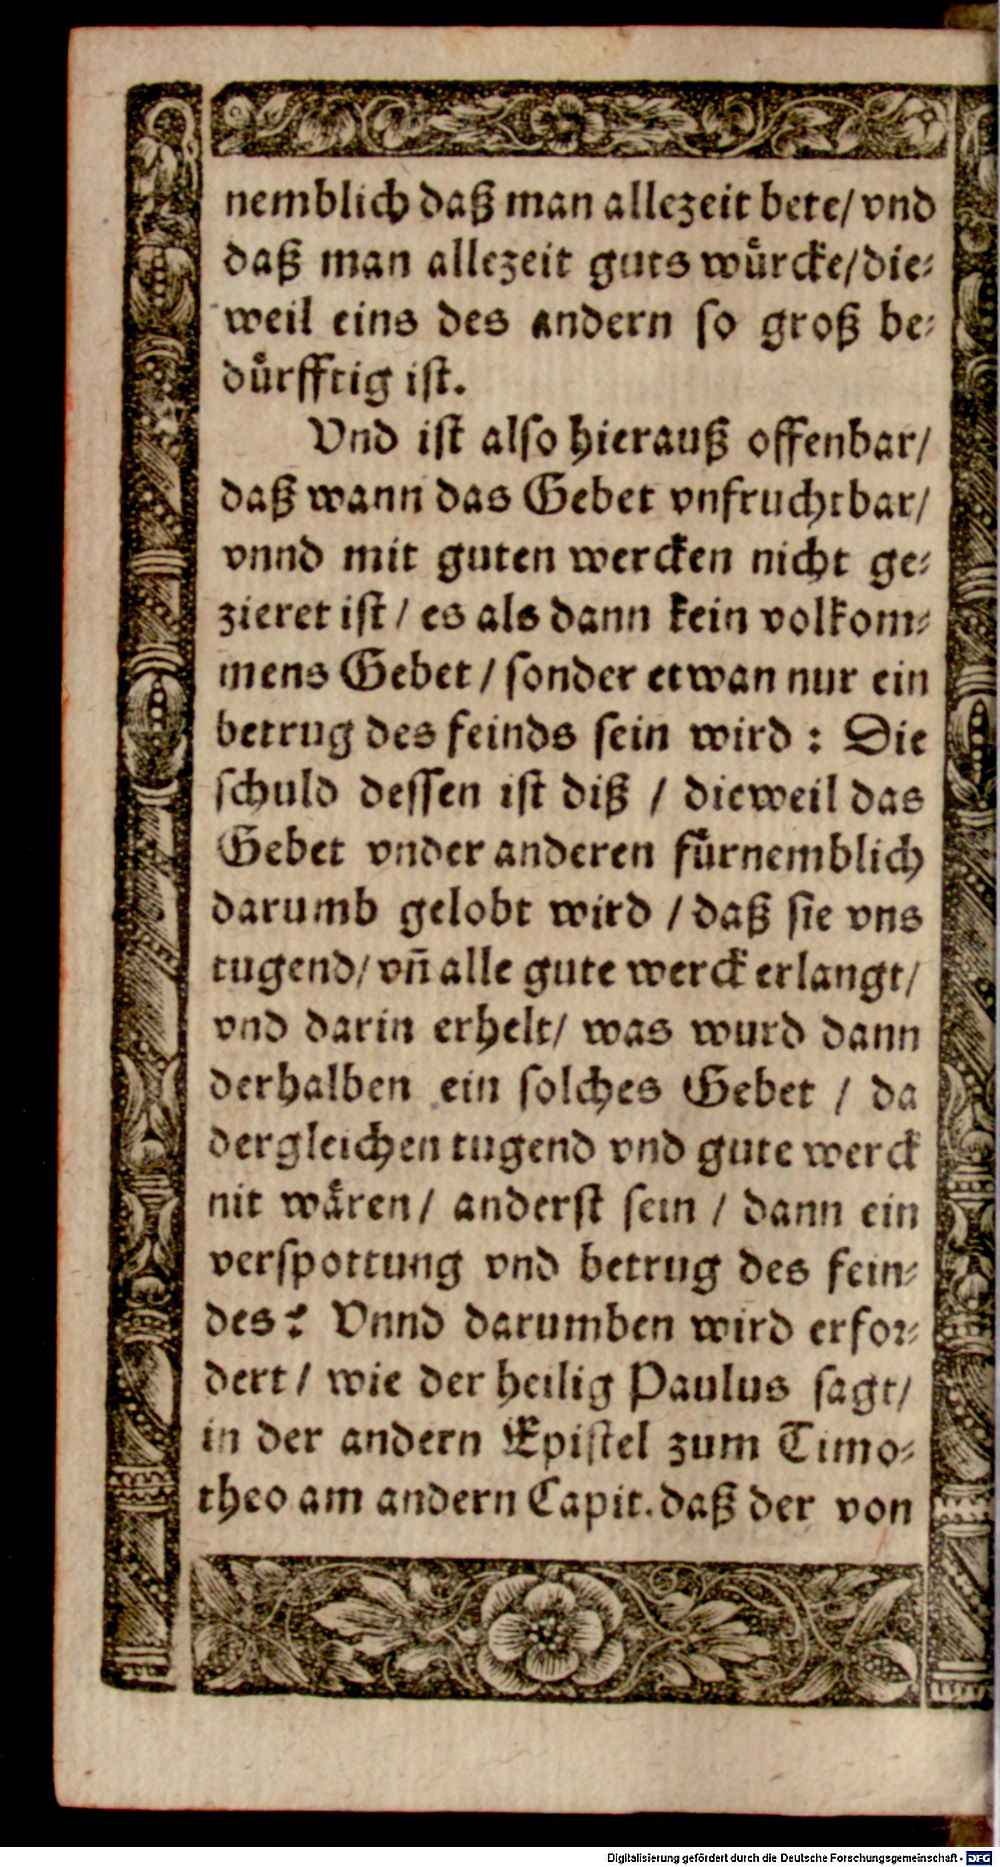 nemblich daß man allezeit bete/ vnd
daß man allezeit guts wuͤrcke/ die⸗
weil eins des andern so groß be⸗
duͤrfftig ist.
Vnd ist also hierauß offenbar/
daß wann das Gebet vnfruchtbar/
vnnd mit guten wercken nicht ge⸗
zieret ist / es als dann kein volkom⸗
mens Gebet / sonder etwan nur ein
betrug des feinds sein wird : Die
schuld dessen ist diß / dieweil das
Gebet vnder anderen fuͤrnemblich
darumb gelobt wird / daß sie vns
tugend/ vn̄ alle gute werck erlangt/
vnd darin erhelt/ was wurd dann
derhalben ein solches Gebet / da
dergleichen tugend vnd gute werck
nit waͤren/ anderst sein / dann ein
verspottung vnd betrug des fein⸗
des? Vnnd darumben wird erfor⸗
dert / wie der heilig Paulus sagt/
in der andern Epistel zum Timo⸗
theo am andern Capit. daß der von
Digitalisierung gefördert durch die Deutsche Forschungsgemeinschaft - DFG